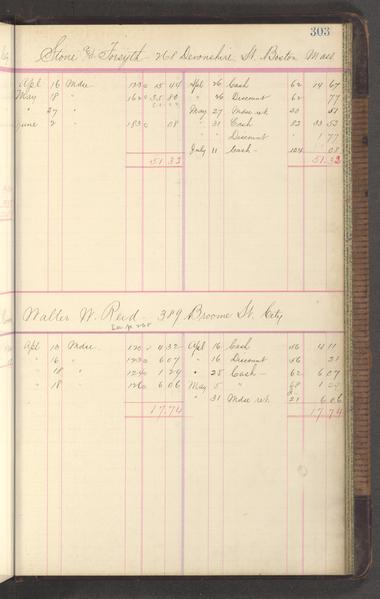 303
Stone & Forsyth - 268 Devonshire St. Boston Mass
Apl 16 Mdse 123 15 44 Apl 26 Cash 62 14 67
May 18 " 162 35 80 " 26 Discount 62 77
" 27 " May 27 Mdse ret 20 51
June 2 183 08 " 31 Cash 83 33 53
" " Discount 1 77
July 11 Cash - 104 08
51.33 51.33
Walter W. Reid - 389 Broome St. City
Apl 10 Mdse 120 4 32 Apl 16 Cash 56 4 11
" 16 " 123 6 07 " 16 Discount 56 21
" 18 " 124 1 29 " 25 Cash - 62 6 07
" 18 " 126 6 06 May 5 " 68 1 29
" 31 Mdse ret 21 6 06
17.74 17.74